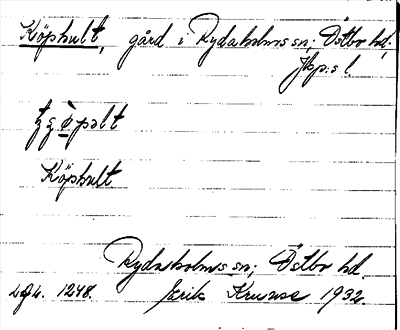 Köphult, gård i Rydaholms sn; Östbo hd;
Jkp:s l.
Köphult
Rydaholms sn; Östbo hd.
1248. Erik 1932.